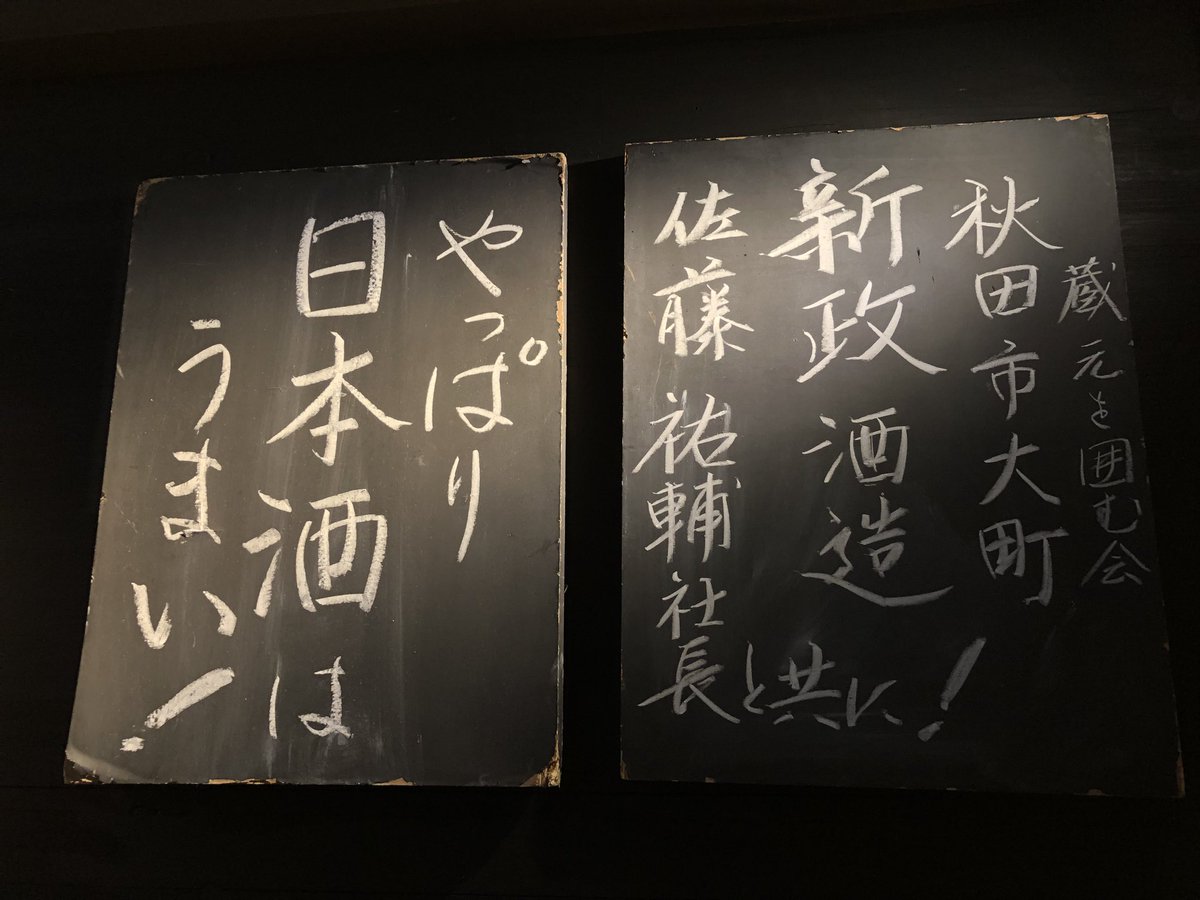 蔵元を囲む会
秋田市大町
新政酒造
佐藤祐輔社長
と共に!
やっぱり
日本酒は
うまい!